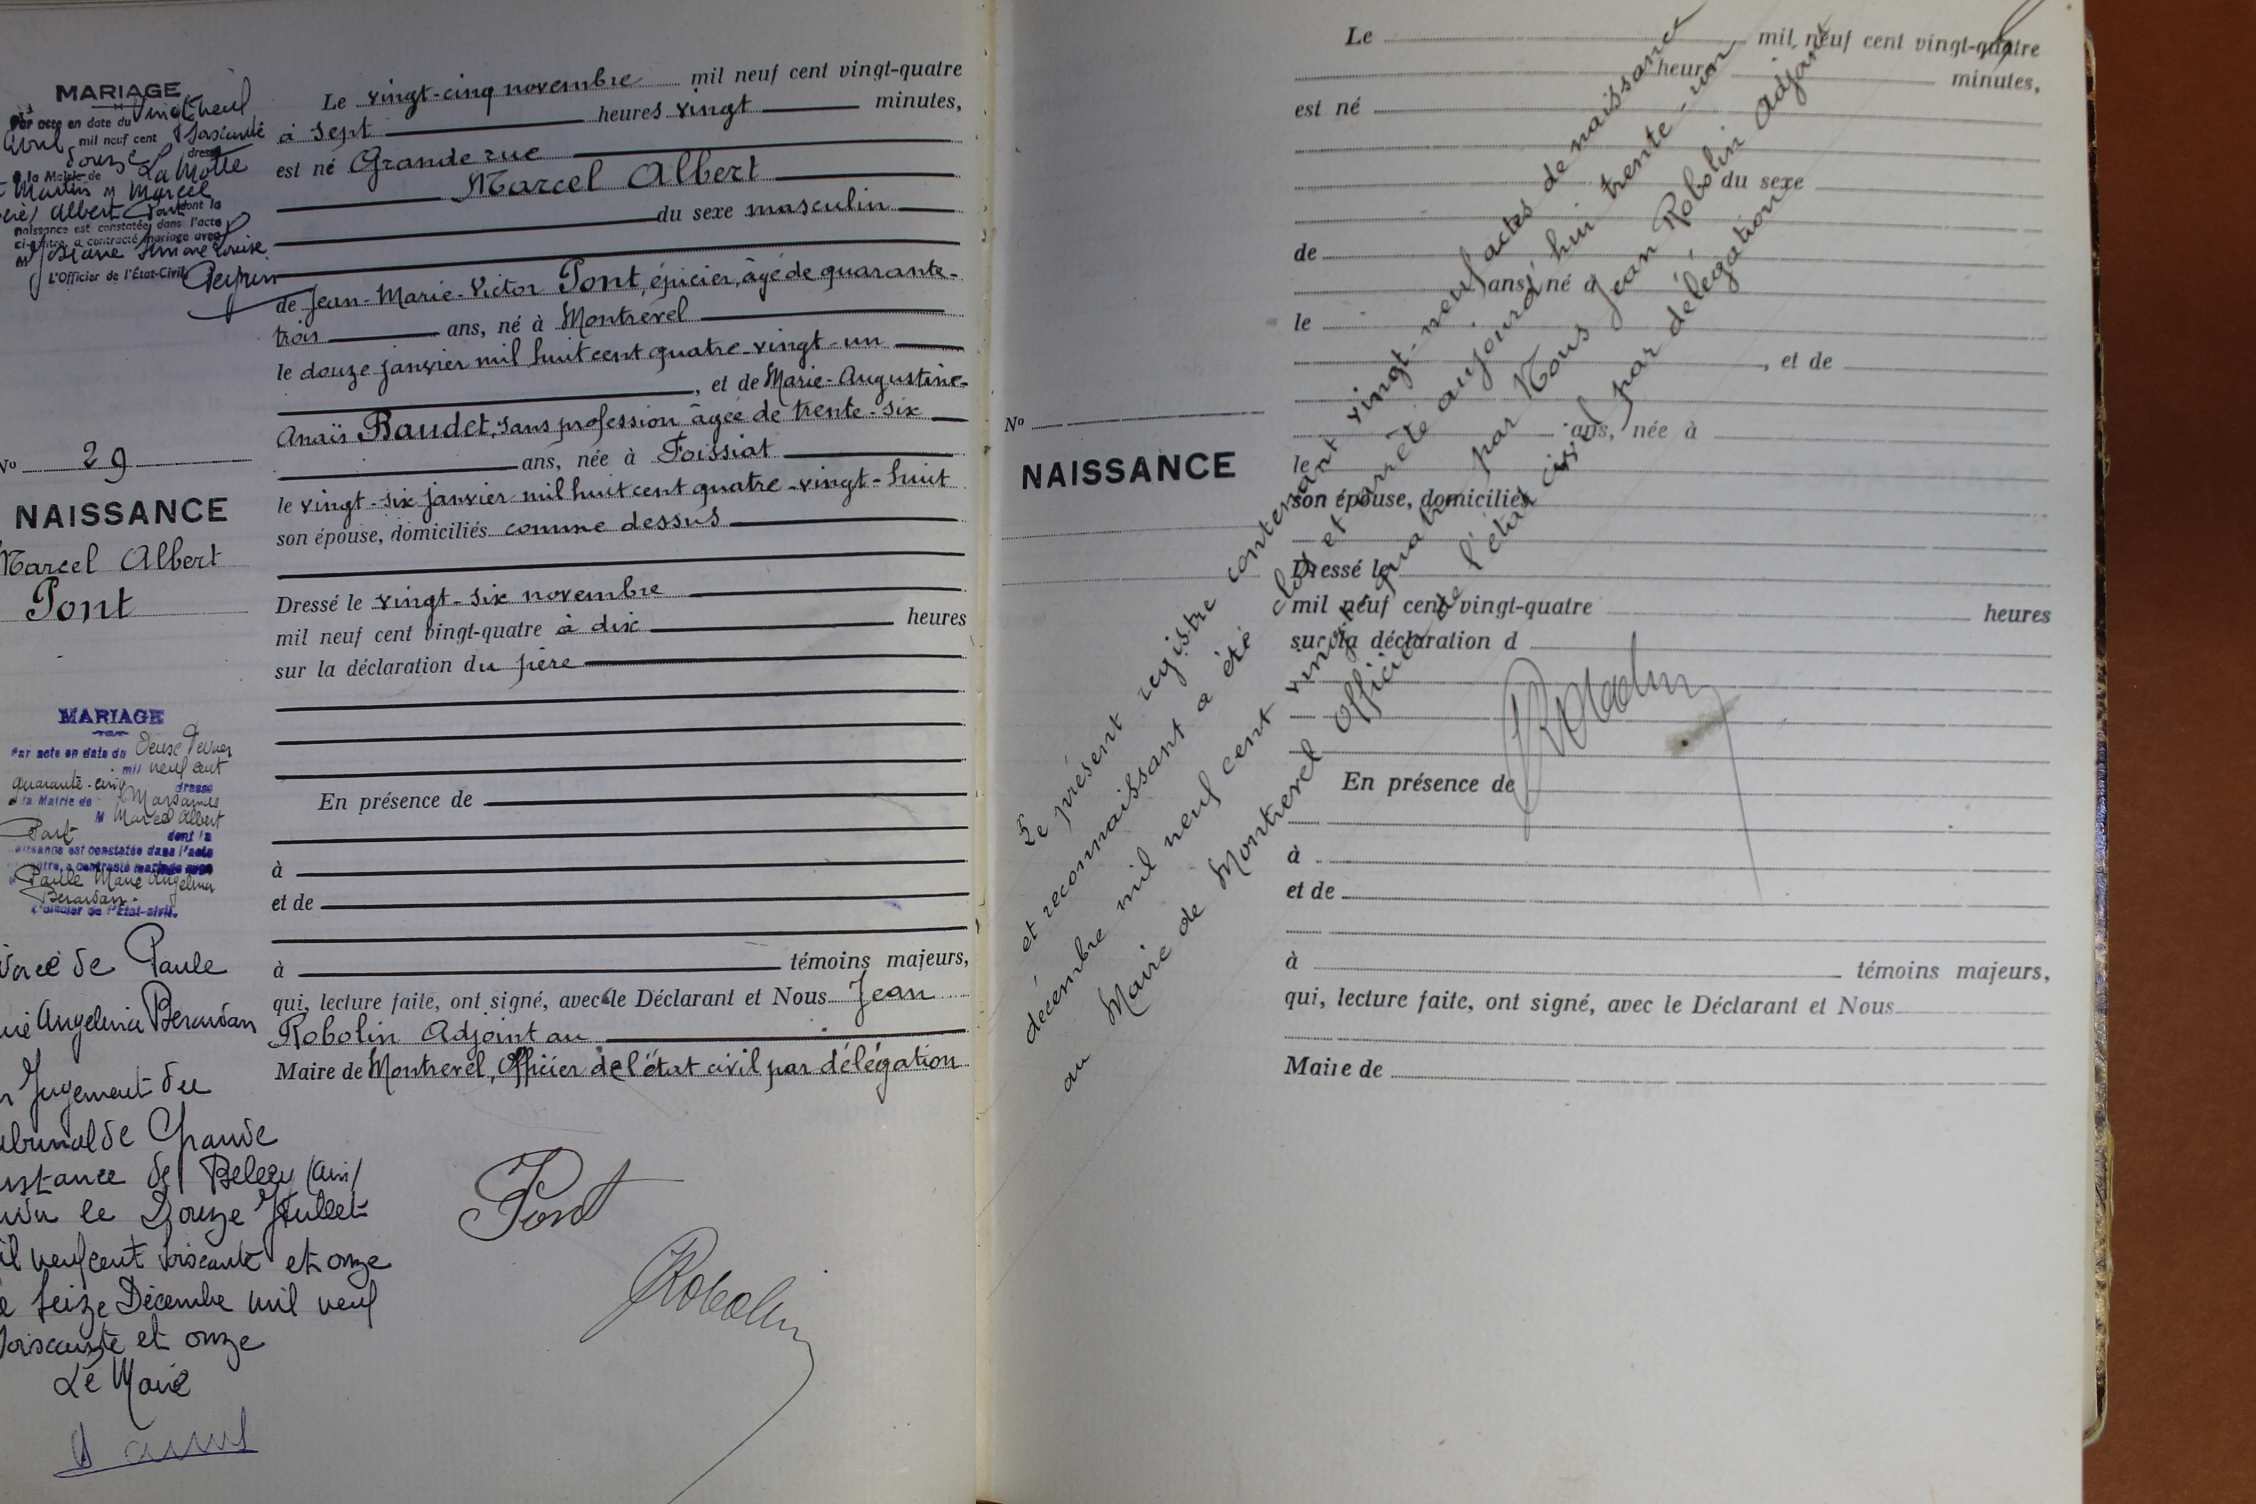 MARIAGE
Par acte en date du Vingt neuf
Avril mil neuf cent Soixante
douze dressé
à la Mairie de La Motte
St Martin M Marcel
Albert Pont dont la
naissance est constatée dans l'acte
ci-contre, a contracté mariage avec
M Josiane Simone Louise
Peyrin
L'Officier de l'État-Civil,
No 29
NAISSANCE
Marcel Albert
Pont
MARIAGE
Par acte en date du Deux Février
mil neuf cent
quarante-cinq dressé
à la Mairie de
M Marcel Albert
Pont dont la
naissance est constatée dans l'acte
ci-contre, a contracté mariage avec
Paule Marie Angelina
Berardan
L'Officier de l'État-civil.
Divorcé de Paule
Marie Angelina Berardan
Jugement du
Tribunal de Grande
Instance de Belley (Ain)
rendu le Douze Juillet
mil neuf cent soixante et onze
le Seize Décembre mil neuf
soixante et onze
Le Maire
Le vingt-cinq novembre mil neuf cent vingt-quatre
à sept heures vingt minutes,
est né Grande rue
Marcel Albert
du sexe masculin
de Jean-Marie-Victor Pont, épicier, âgé de quarante-
trois ans, né à Montrevel
le douze janvier mil huit cent quatre-vingt-un
, et de Marie-Augustine-
Anaïs Baudet, sans profession âgée de trente-six
ans, née à Foissiat
le vingt-six janvier mil huit cent quatre-vingt-huit
son épouse, domiciliés comme dessus
Dressé le vingt-six novembre
mil neuf cent vingt-quatre à dix heures
sur la déclaration du père
En présence de
à
et de
à témoins majeurs,
qui, lecture faite, ont signé, avec le Déclarant et Nous Jean
Robolin Adjoint au
Maire de Montrevel, Officier de l'état civil par délégation
Pont
Robolin
No
NAISSANCE
Le mil neuf cent vingt-quatre
heures minutes,
est né
du sexe
de
ans, né à
le
, et de
ans, née à
le
son épouse, domiciliés
Dressé le
mil neuf cent vingt-quatre heures
sur la déclaration d
En présence de
à
et de
à témoins majeurs,
qui, lecture faite, ont signé, avec le Déclarant et Nous
Maire de
Le présent registre contenant vingt-neuf actes de naissance
et reconnaissant a été clos et arrêté aujourd'hui trente-un
décembre mil neuf cent vingt-quatre par Nous Jean Robolin Adjoint
au Maire de Montrevel Officier de l'état civil par délégation
Robolin